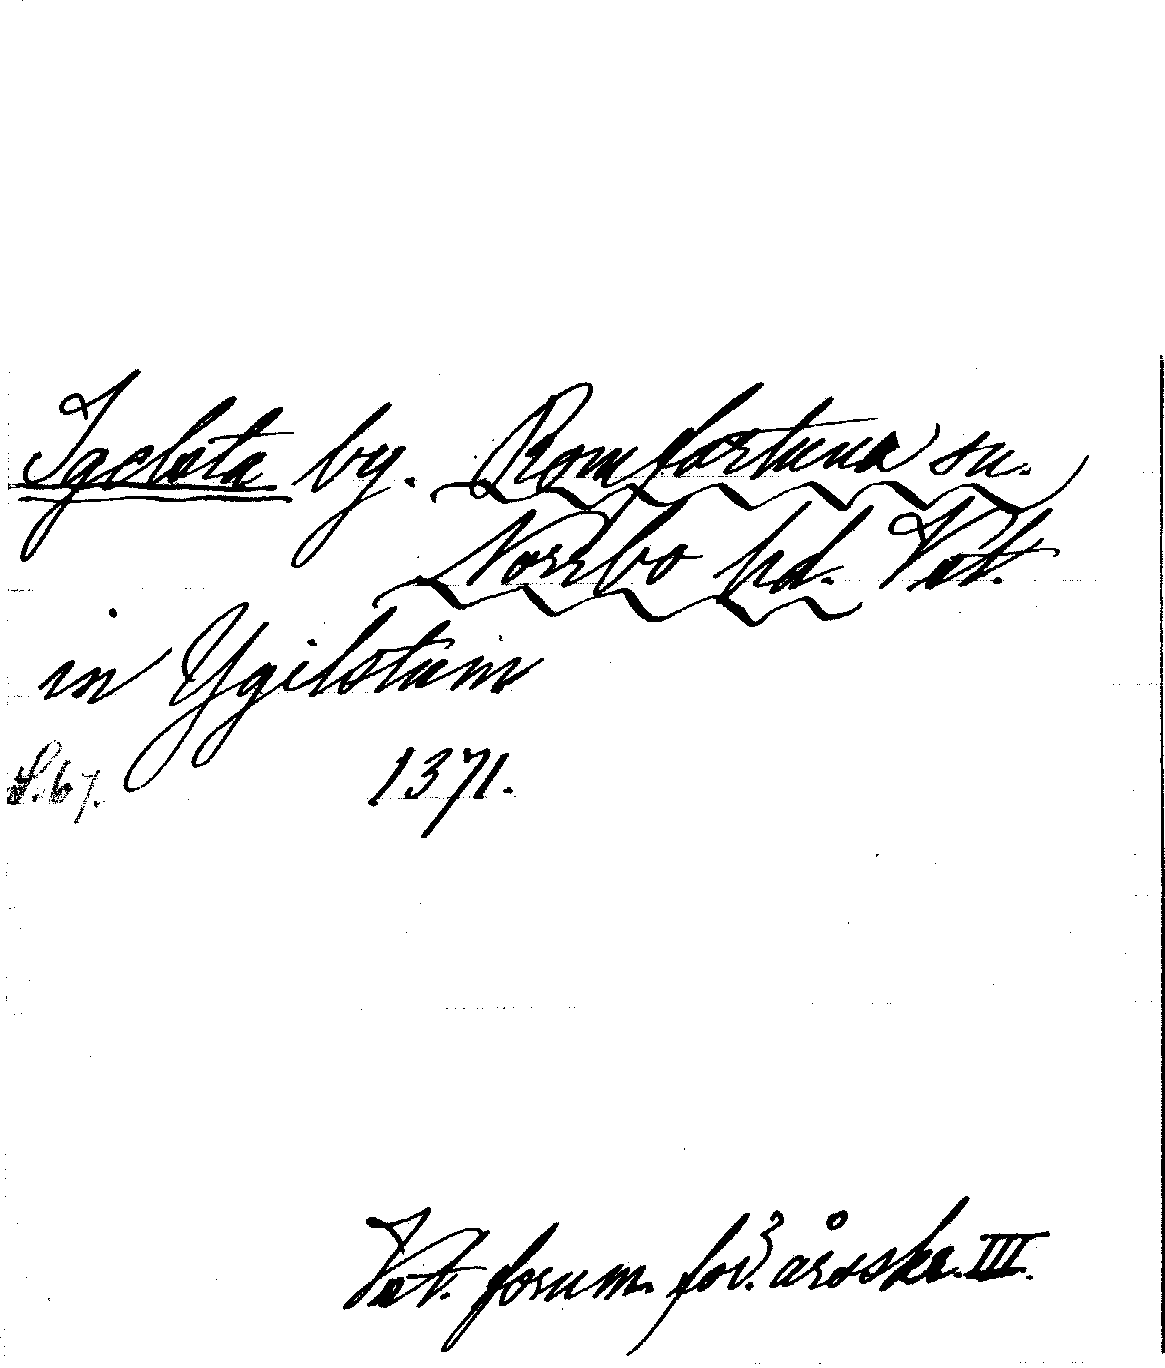 Igelsta by. Romfartuna sn.
Norrbo hd. Vst.
in Ygilstum
S. 67. 1371.
Vst. fornm. för:s årsskr. III.